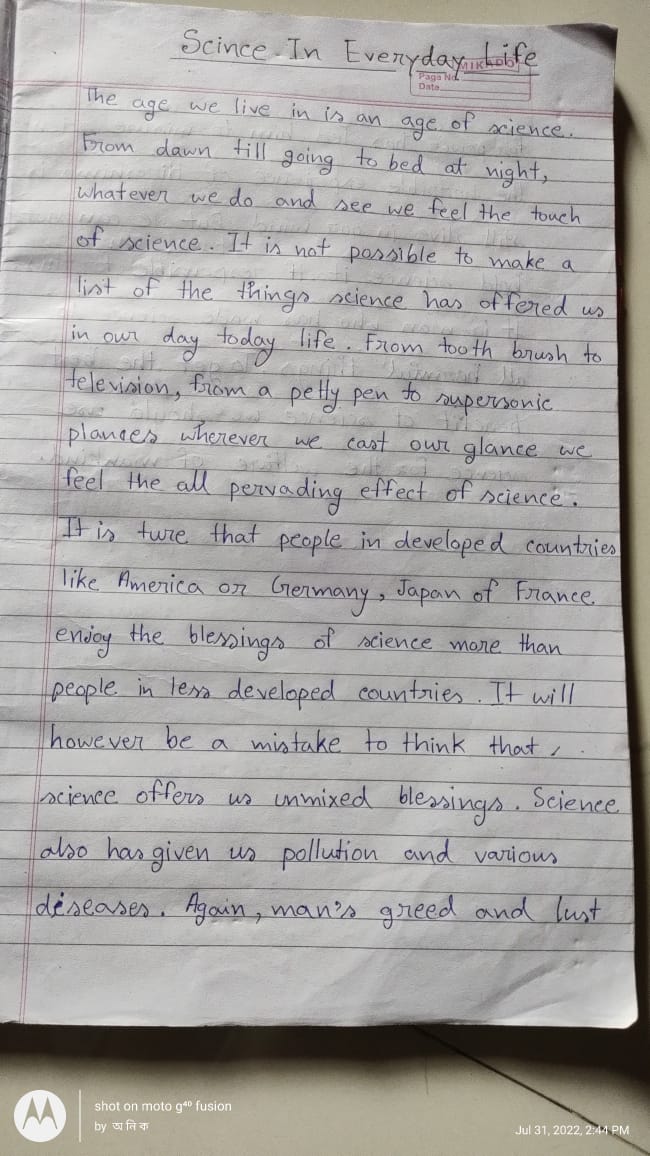 Scince In Everyday Life
MIKADO
Page No
Date
The age we live in is an age of science.
From dawn till going to bed at night,
whatever we do and see we feel the touch
of science. It is not possible to make a
list of the things science has offered us
in our day today life. From tooth brush to
television, from a petty pen to supersonic
planaes wherever we cast our glance we
feel the all pervading effect of science.
It is ture that people in developed countries
like America or Germany, Japan of France.
enjoy the blessings of science more than
people in less developed countries. It will
however be a mistake to think that,
science offers us unmixed blessings. Science
also has given us pollution and various
diseases. Again, man's greed and lust
shot on moto g⁴⁰ fusion
by অনিক
Jul 31, 2022, 2:44 PM